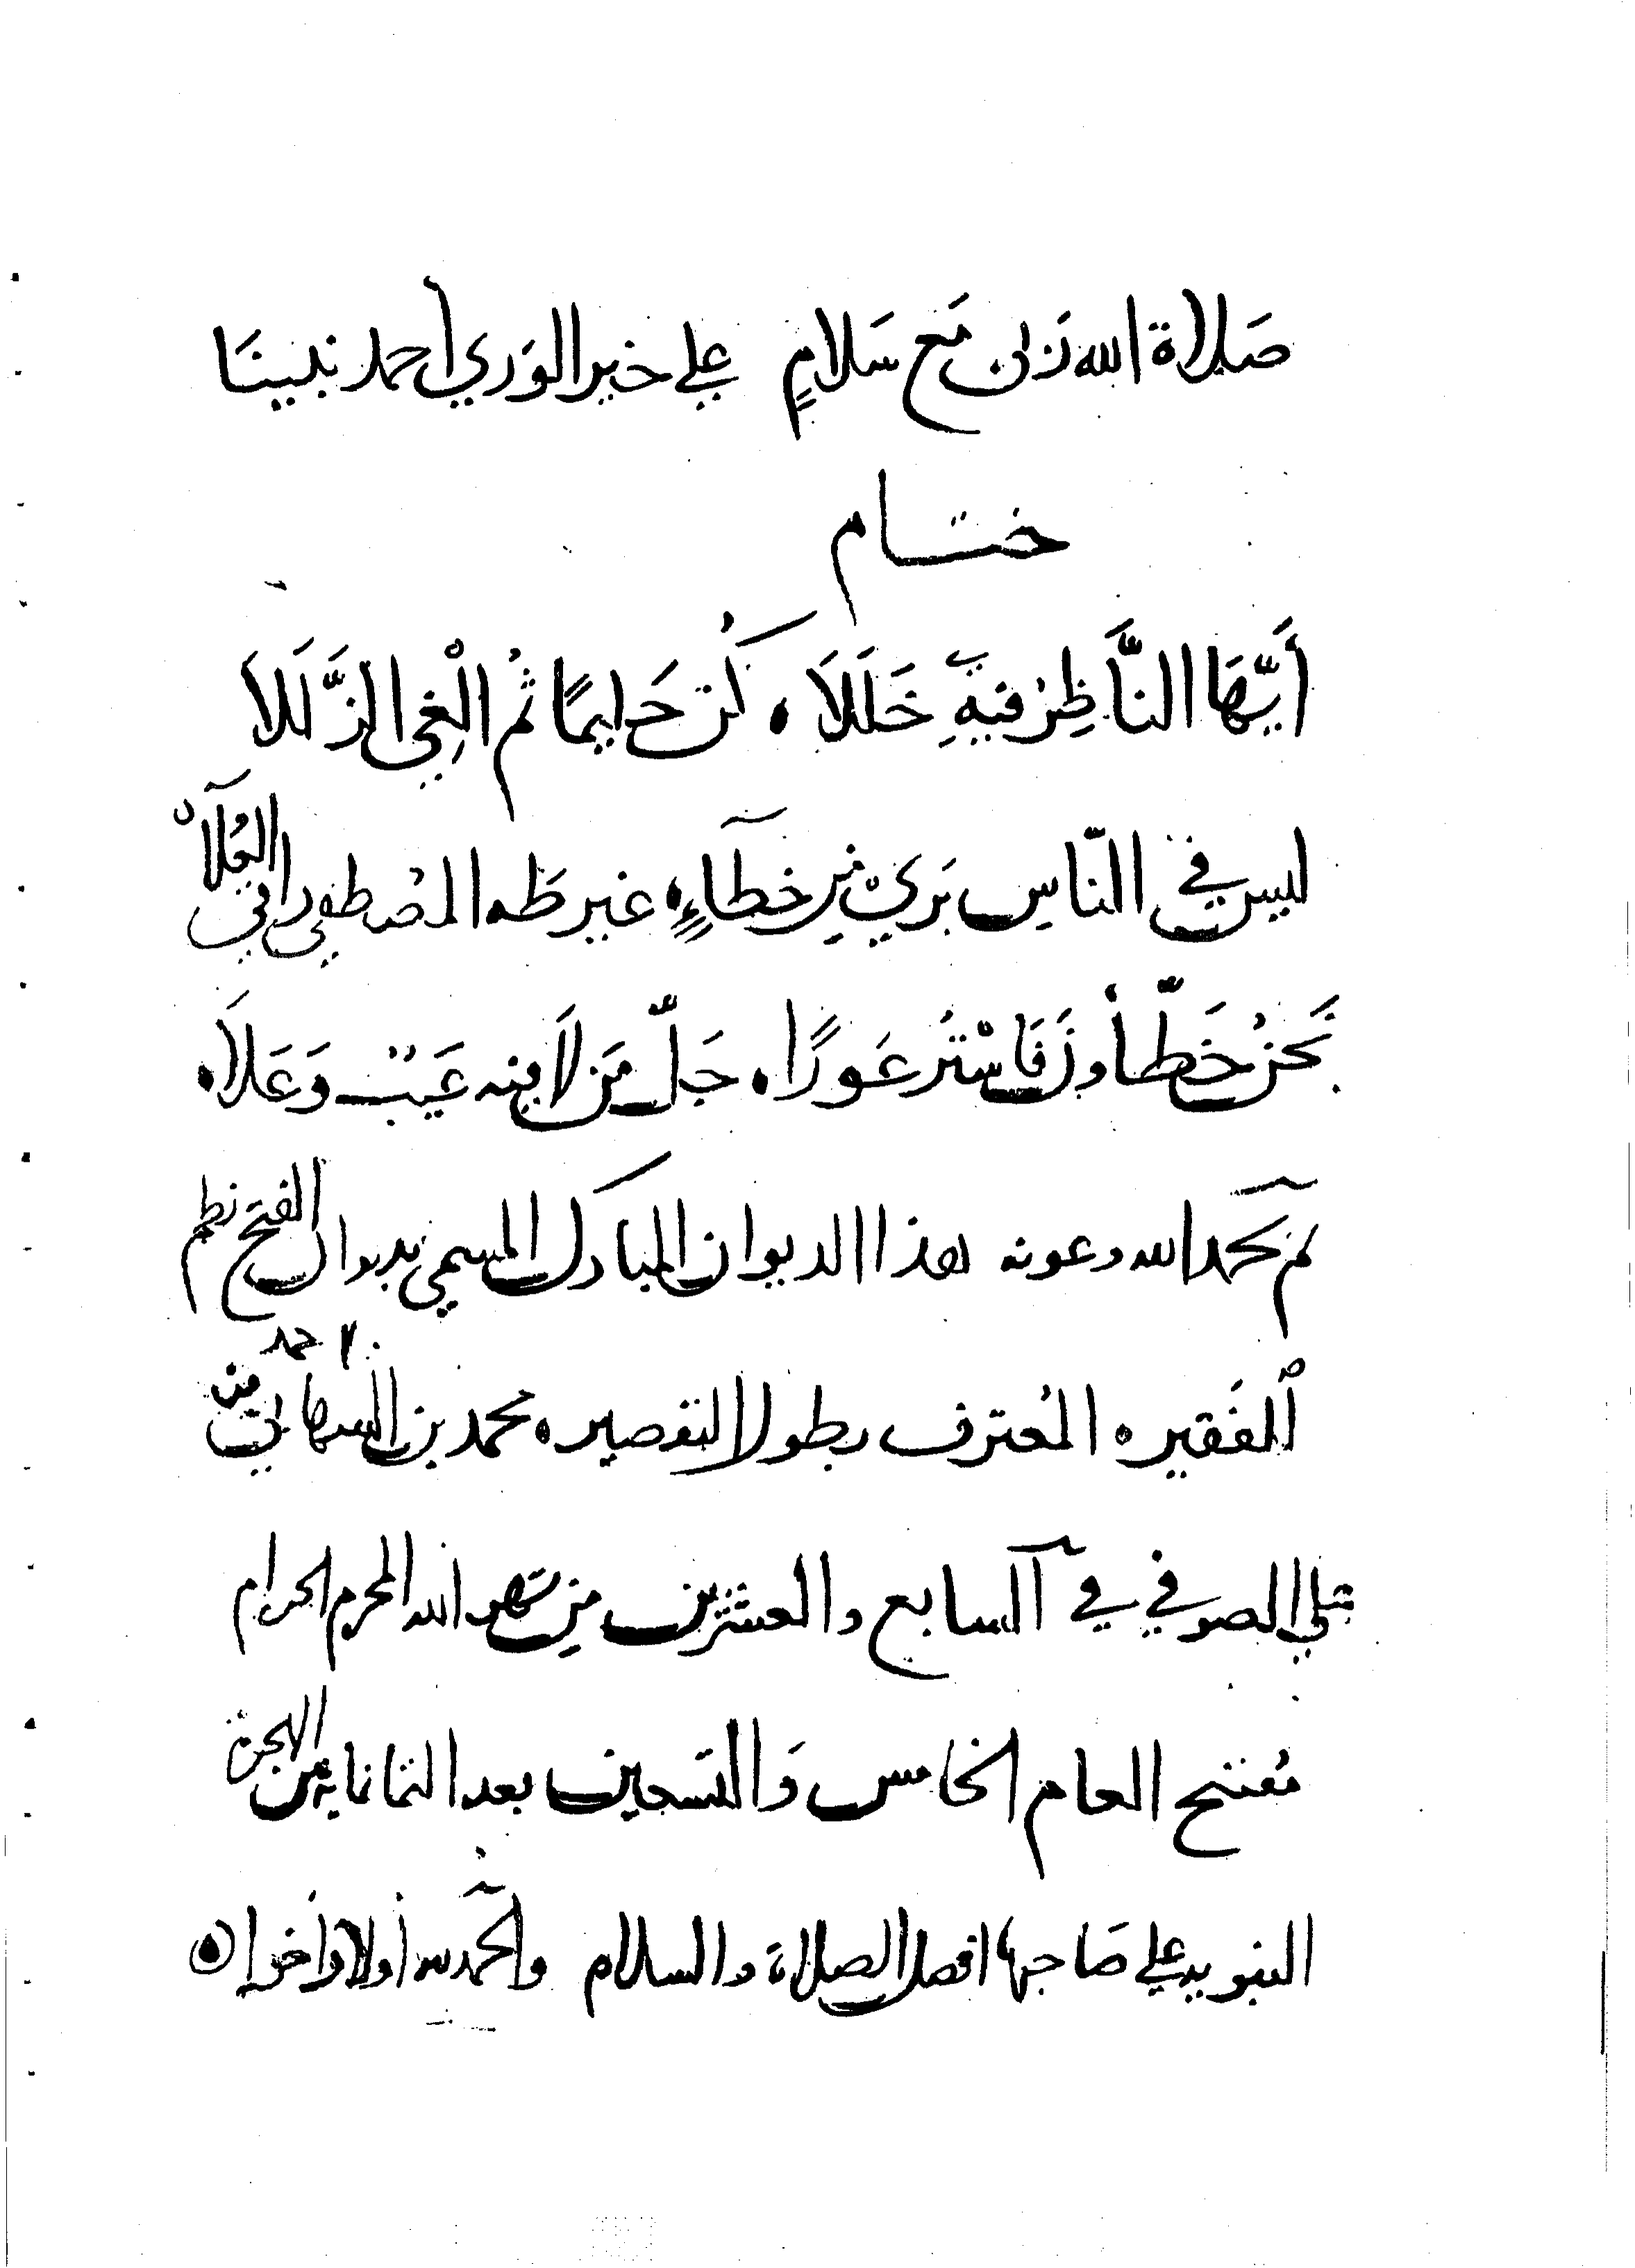 صَلاة الله رَبي مَع سَلامٍ علي خير الوَري احمد نبينَا
ختام
أَيُّهَا النَّاظِرُ فيهِ خَلَلاَ ، كُن حَليمًا ثُم الْغِي الزَّلَلاَ
ليس في النّاسِ بَريْ مِن خطآءٍ ، غير طَه المصُطفي راقي العُلآ
نَحنُ خَطَّاؤنَ فَاسْتُر عَورًا ، جَلَّ مَن لاَ فيه عَيبٌ وَعَلاَ ،
تم بحمد الله وعونه هذا الديوان المبارك المسمي بديوان الفتح نظم
الفَقير ، المُعترف بطول التقصير ، محمد بن احمد من
علي الصوفي في السابع والعشرين مِن شهر الله المحرم الحرام
مُفتتح العام الخامس وَالتسعين بعد الثمانماية من الهجرة
النبويه علي صَاحبها افضل الصلاة والسلام والحمد لله أولا وأخرا